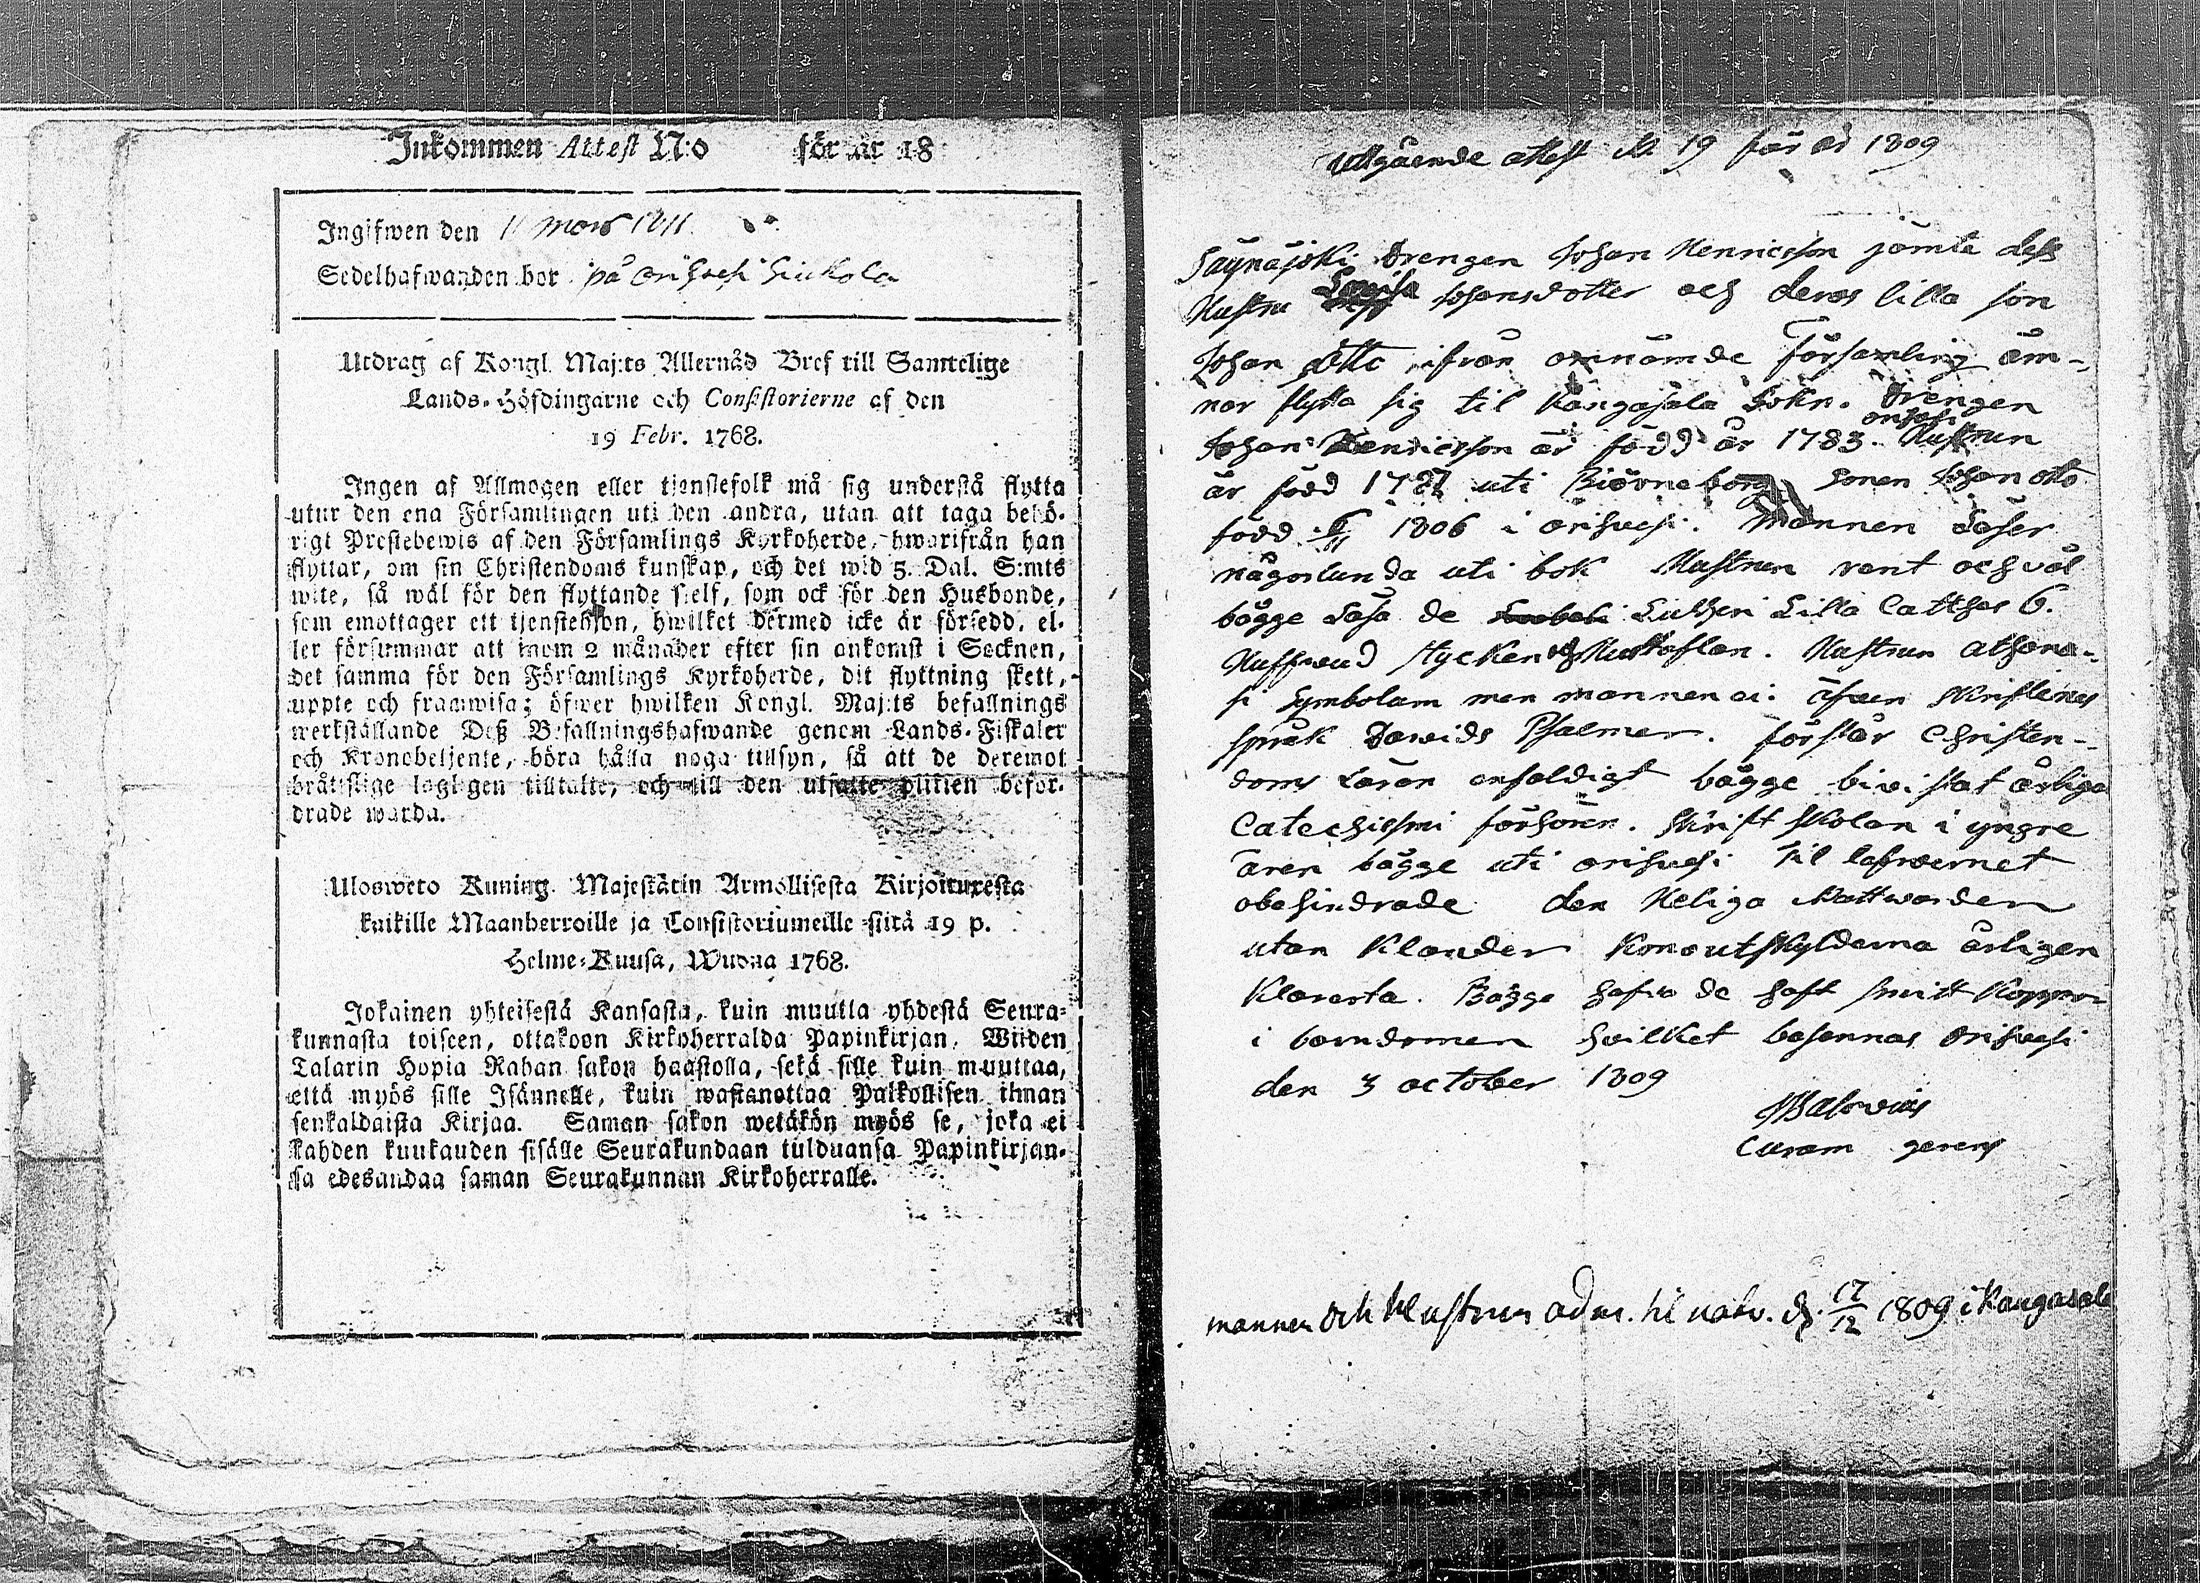 Inkommen Attest N:o för år 18
Ingifwen den 11 mars 1811.
Sedelhafwanden bor på Orihvesi
Utdrag af Kongl. Maj:ts Allernåd Bref till Samtelige
Lands-Höfdingarne och Consistorierne af den
19 Febr. 1768.
Ingen af Allmogen eller tjenstefolk må sig understå flytta
utur den ena Församlingen uti den andra, utan att taga behö-
rigt Prestebewis af den Församlings Kyrkoherde, hwarifrån han
flyttar, om sin Christendoms kunskap, och det wid 5. Dal. S:mts
wite, så wäl för den flyttande sielf, som ock för den Husbonde,
som emottager ett tjenstehjon, hwilket dermed icke är försedd, el-
ler försummar att inom 2 månader efter sin ankomst i Socknen,
det samma för den Församlings Kyrkoherde, dit flyttning skett,
uppte och framwisa; öfwer hwilken Kongl. Maj:ts befallnings
werkställande Deß Befallningshafwande genom Lands-Fiskaler
och Kronobetjente, böra hålla noga tillsyn, så att de deremot
bråttslige lagligen tilltalte, och till den utsatte plikten befor-
drade warda.
Ulosweto Kuning. Majestätin Armollisesta Kirjoituxesta
kaikille Maanherroille ja Consistoriumeille siitä 19 p.
Helme-Kuusa, Wuona 1768.
Jokainen yhteisestä Kansasta, kuin muutta yhdestä Seura-
kunnasta toiseen, ottakoon Kirkoherralda Papinkirjan, Wiiden
Talarin Hopia Rahan sakon haastolla, sekä sille kuin muuttaa,
että myös sille Isännelle, kuin wastanottaa Palkollisen ilman
senkaldaista Kirjaa. Saman sakon wetäkön myös se, joka ei
kahden kuukauden sisälle Seurakundaan tulduansa Papinkirjan-
sa edesandaa saman Seurakunnan Kirkoherralle.
Utgående attest N 19 för år 1809
Säynäjoki Drengen Johan Henricsson jämte dess
Hustru Lovisa Johansdotter och deras lilla son
Johan Otto ifrån ofvannämde Församling äm-
nar flytta sig til Kangasala Sokn. Drengen
Johan Henricsson är född år 1783. Orihvesi Hustrun
är född 1787 uti Biörneborg Sonen Johan Otto
född 1806 i Orihvesi. Mannen läser
någorlunda uti bok Hustrun rent och väl
bägge läsa de Lutheri Lilla Catches 6.
Hufvud stycken och Hustaflan. Hustrun Athana-
si Symbolum men mannen ei. äfven Skriftenes
språk Davids Psalmer. förstår Christen-
doms Läran enfaldigt bägge bivistat årliga
Catechismi förhören. Skrift Skolan i yngre
åren bägge uti Orihvesi Til lefvernet
obehindrade den Heliga Nattvarden
utan Klander Kronoutskylderna årligen
Klarerta. Bägge hafva de haft smitt Koppor
i barndomen hvilket betannas Orihvesi
den 3 october 1809
Curam gerens
mannen och Hustrun adm. til natv. d. 17/12 1809 i Kangasala